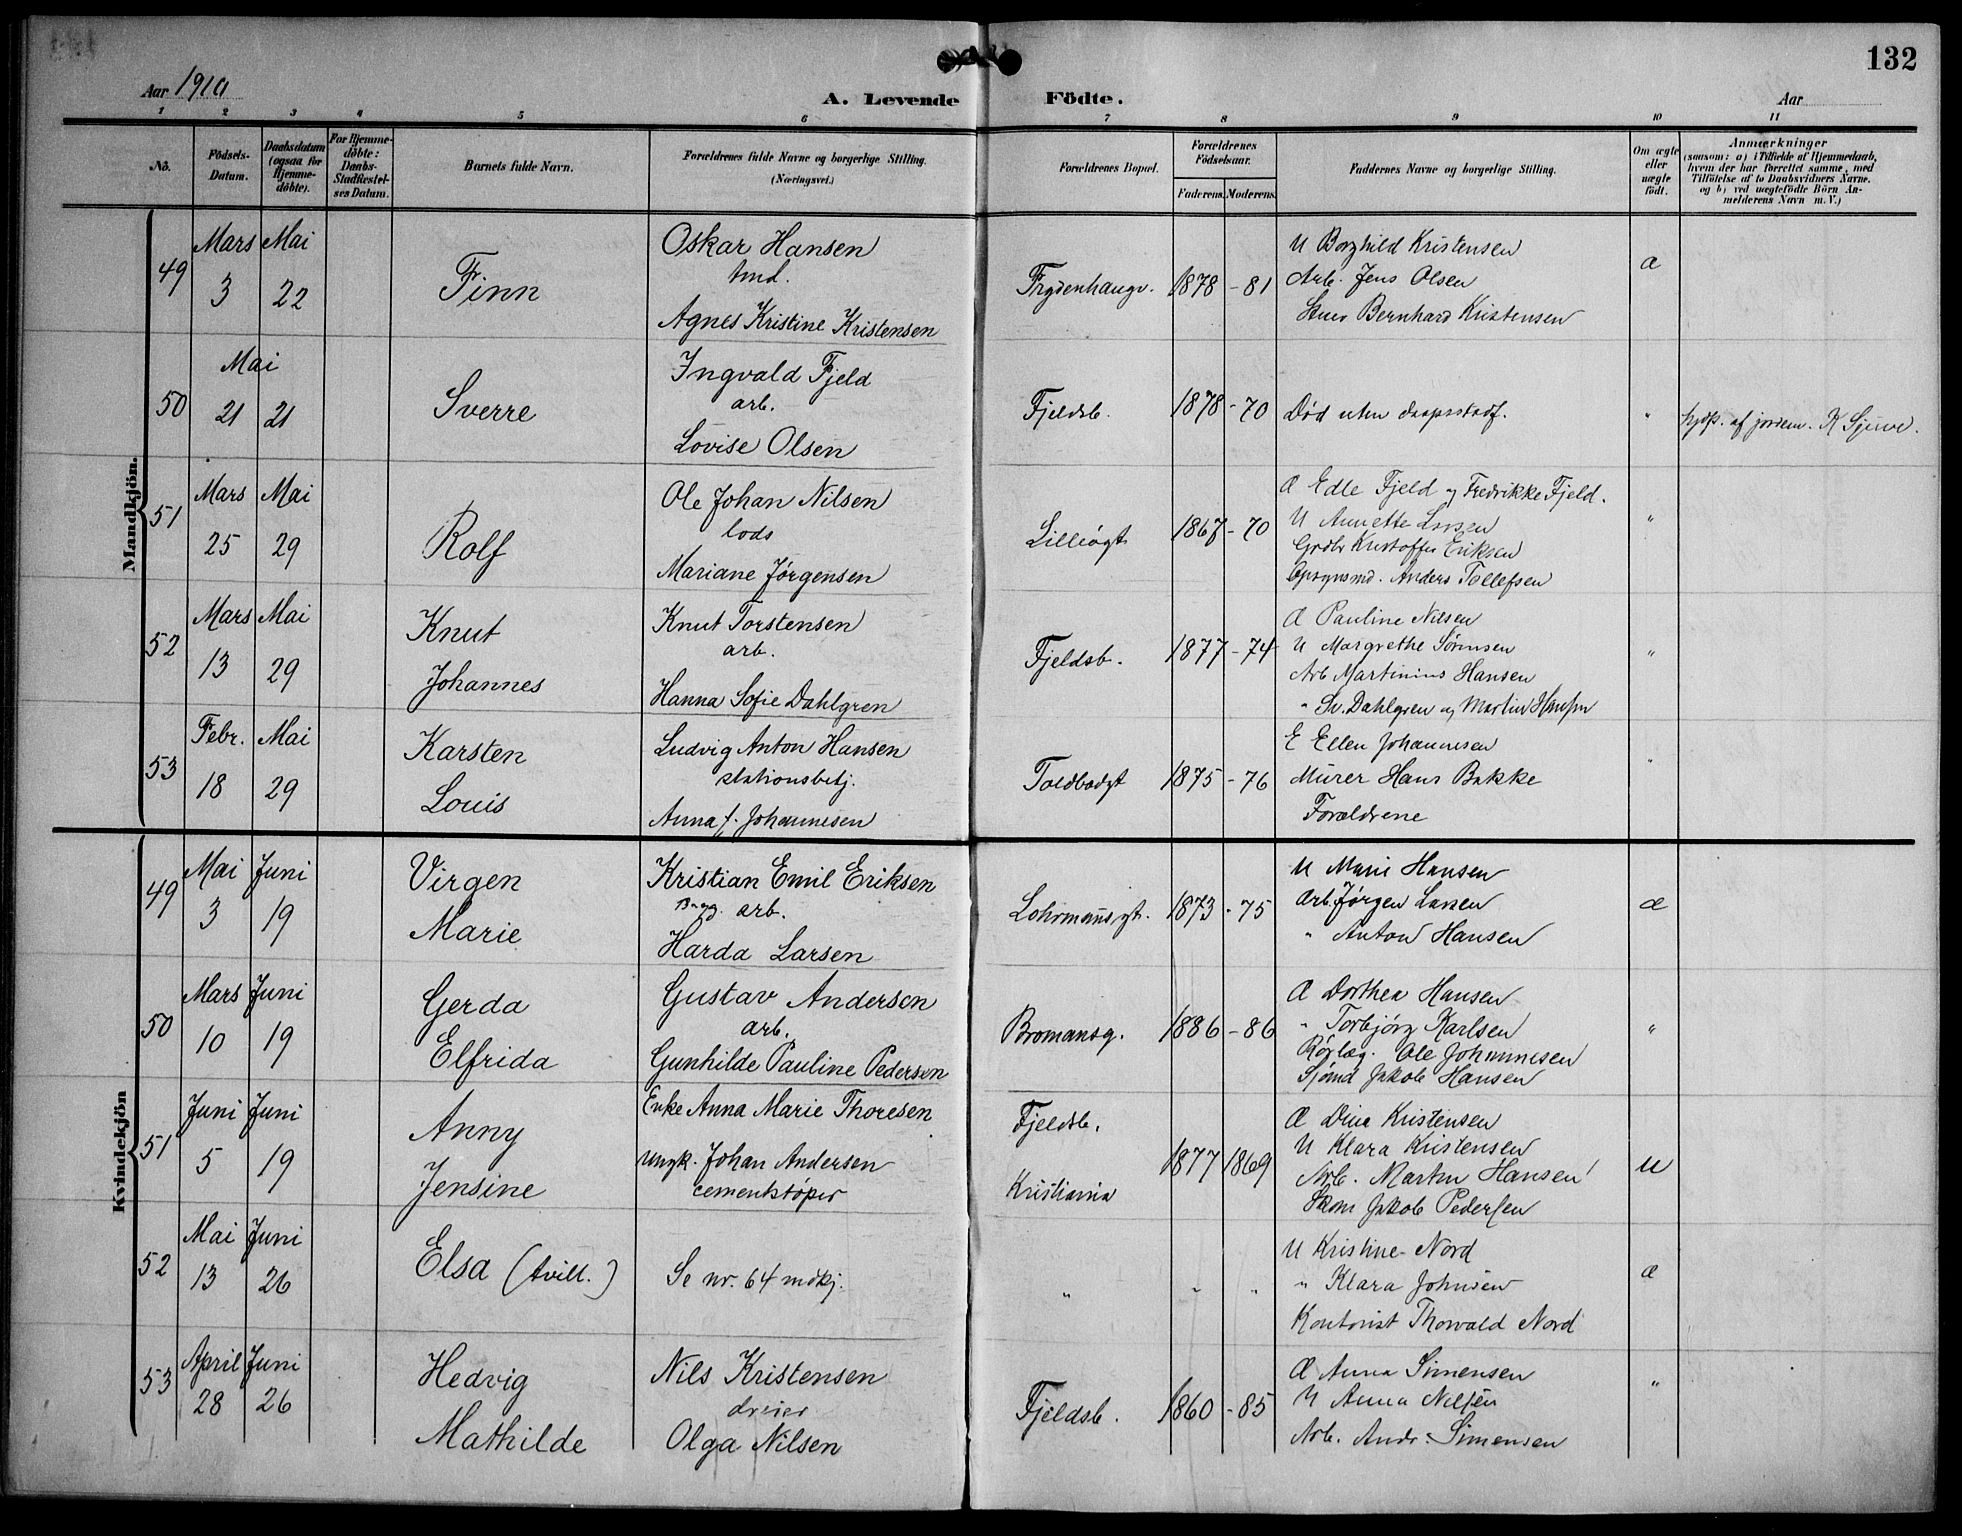 132
Aar 1910
A. Levende Födte.
Aar
1 2 3 4 5 6 7 8 9 10 11
No.
Födsels-Datum.
Daabsdatum (ogsaa for Hjemme-döbte).
For Hjemme-döbte: Daabs-Stadfæstel-ses Datum.
Barnets fulde Navn.
Forældrenes fulde Navne og borgerlige Stilling.
(Næringsvei.)
Forældrenes Bopæl.
Forældrenes Födselsaar.
Faderens. Moderens.
Faddernes Navne og borgerlige Stilling.
Om ægte eller uægte födt.
Anmærkninger
(saasom: a) i Tilfælde af Hjemmedaab,
hvem der har forrettet samme, med
Tilföielse af to Daabsvidners Navne.
og b) ved uægtefödte Börn An-
melderens Navn m. V.)
Mandkjön.
49 Mars 3 Mai 22
Finn
Oskar Hansen
tmd.
Agnes Kristine Kristensen
Frydenhaugv. 1878 - 81
U Borghild Kristensen
Arb. Jens Olsen
Bernhard Kristensen
Æ
50 Mai 21 21
Sverre
Ingvald Fjeld
arb.
Lovise Olsen
Fjeldsb. 1878 - 70
Død uten daapsstadf.
"
af jordem. K
51 Mars 25 Mai 29
Rolf
Ole Johan Nilsen
lods
Mariane Jørgensen
Lilleøgt 1867 - 70
Æ Edle Fjeld og Fredrikke Fjeld.
U Annette Larsen
Grdbr Kristoffer Eriksen
Opsynsmd. Anders Tollefsen
"
52 Mars 13 Mai 29
Knut
Johannes
Knut Torstensen
arb.
Hanna Sofie Dahlgren
Fjeldsb. 1877 - 74
Æ Pauline Nilsen
U Margrethe Sørensen
Arb Martinius Hansen
" Dahlgren og Martin Hansen
"
53 Febr. 18 Mai 29
Karsten
Louis
Ludvig Anton Hansen
stationsbetj.
Anna f. Johannesen
Toldbodgt 1875 - 76
E Ellen Johannesen
Murer Hans Bakke
Forældrene
"
Kvindekjön
49 Mai 3 Juni 19
Virgen
Marie
Kristian Emil Eriksen
arb.
Harda Larsen
Lohrmansgt. 1873 - 75
U Marie Hansen
Arb. Jørgen Larsen
" Anton Hansen
Æ
50 Mars 10 Juni 19
Gerda
Elfrida
Gustav Andersen
arb.
Gunhilde Pauline Pedersen
Bromansg. 1886 - 86
Æ Dorthea Hansen
" Torbjørg Karlsen
Rørlæg. Ole Johannesen
Sjømd Jakob Hansen
"
51 Juni 5 Juni 19
Anny
Jensine
Enke Anna Marie Thoresen
Ungk. Johan Andersen
cementstøper
Fjeldsb.
Kristiania
1877 1869
Æ Dina Kristensen
U Klara Kristensen
Arb. Martin Hansen
Skom Jakob Pedersen
U
52 Mai 13 Juni 26
Elsa (tvill.)
Se nr. 64 mdkj.
" " "
U Kristine Nord
" Klara Johnsen
Kontorist Thorvald Nord
Æ
53 April 28 Juni 26
Hedvig
Mathilde
Nils Kristensen
dreier
Olga Nilsen
Fjeldsb. 1860 - 85
Æ Anna Simensen
U Anna Nilsen
Arb. Andr. Simensen
"